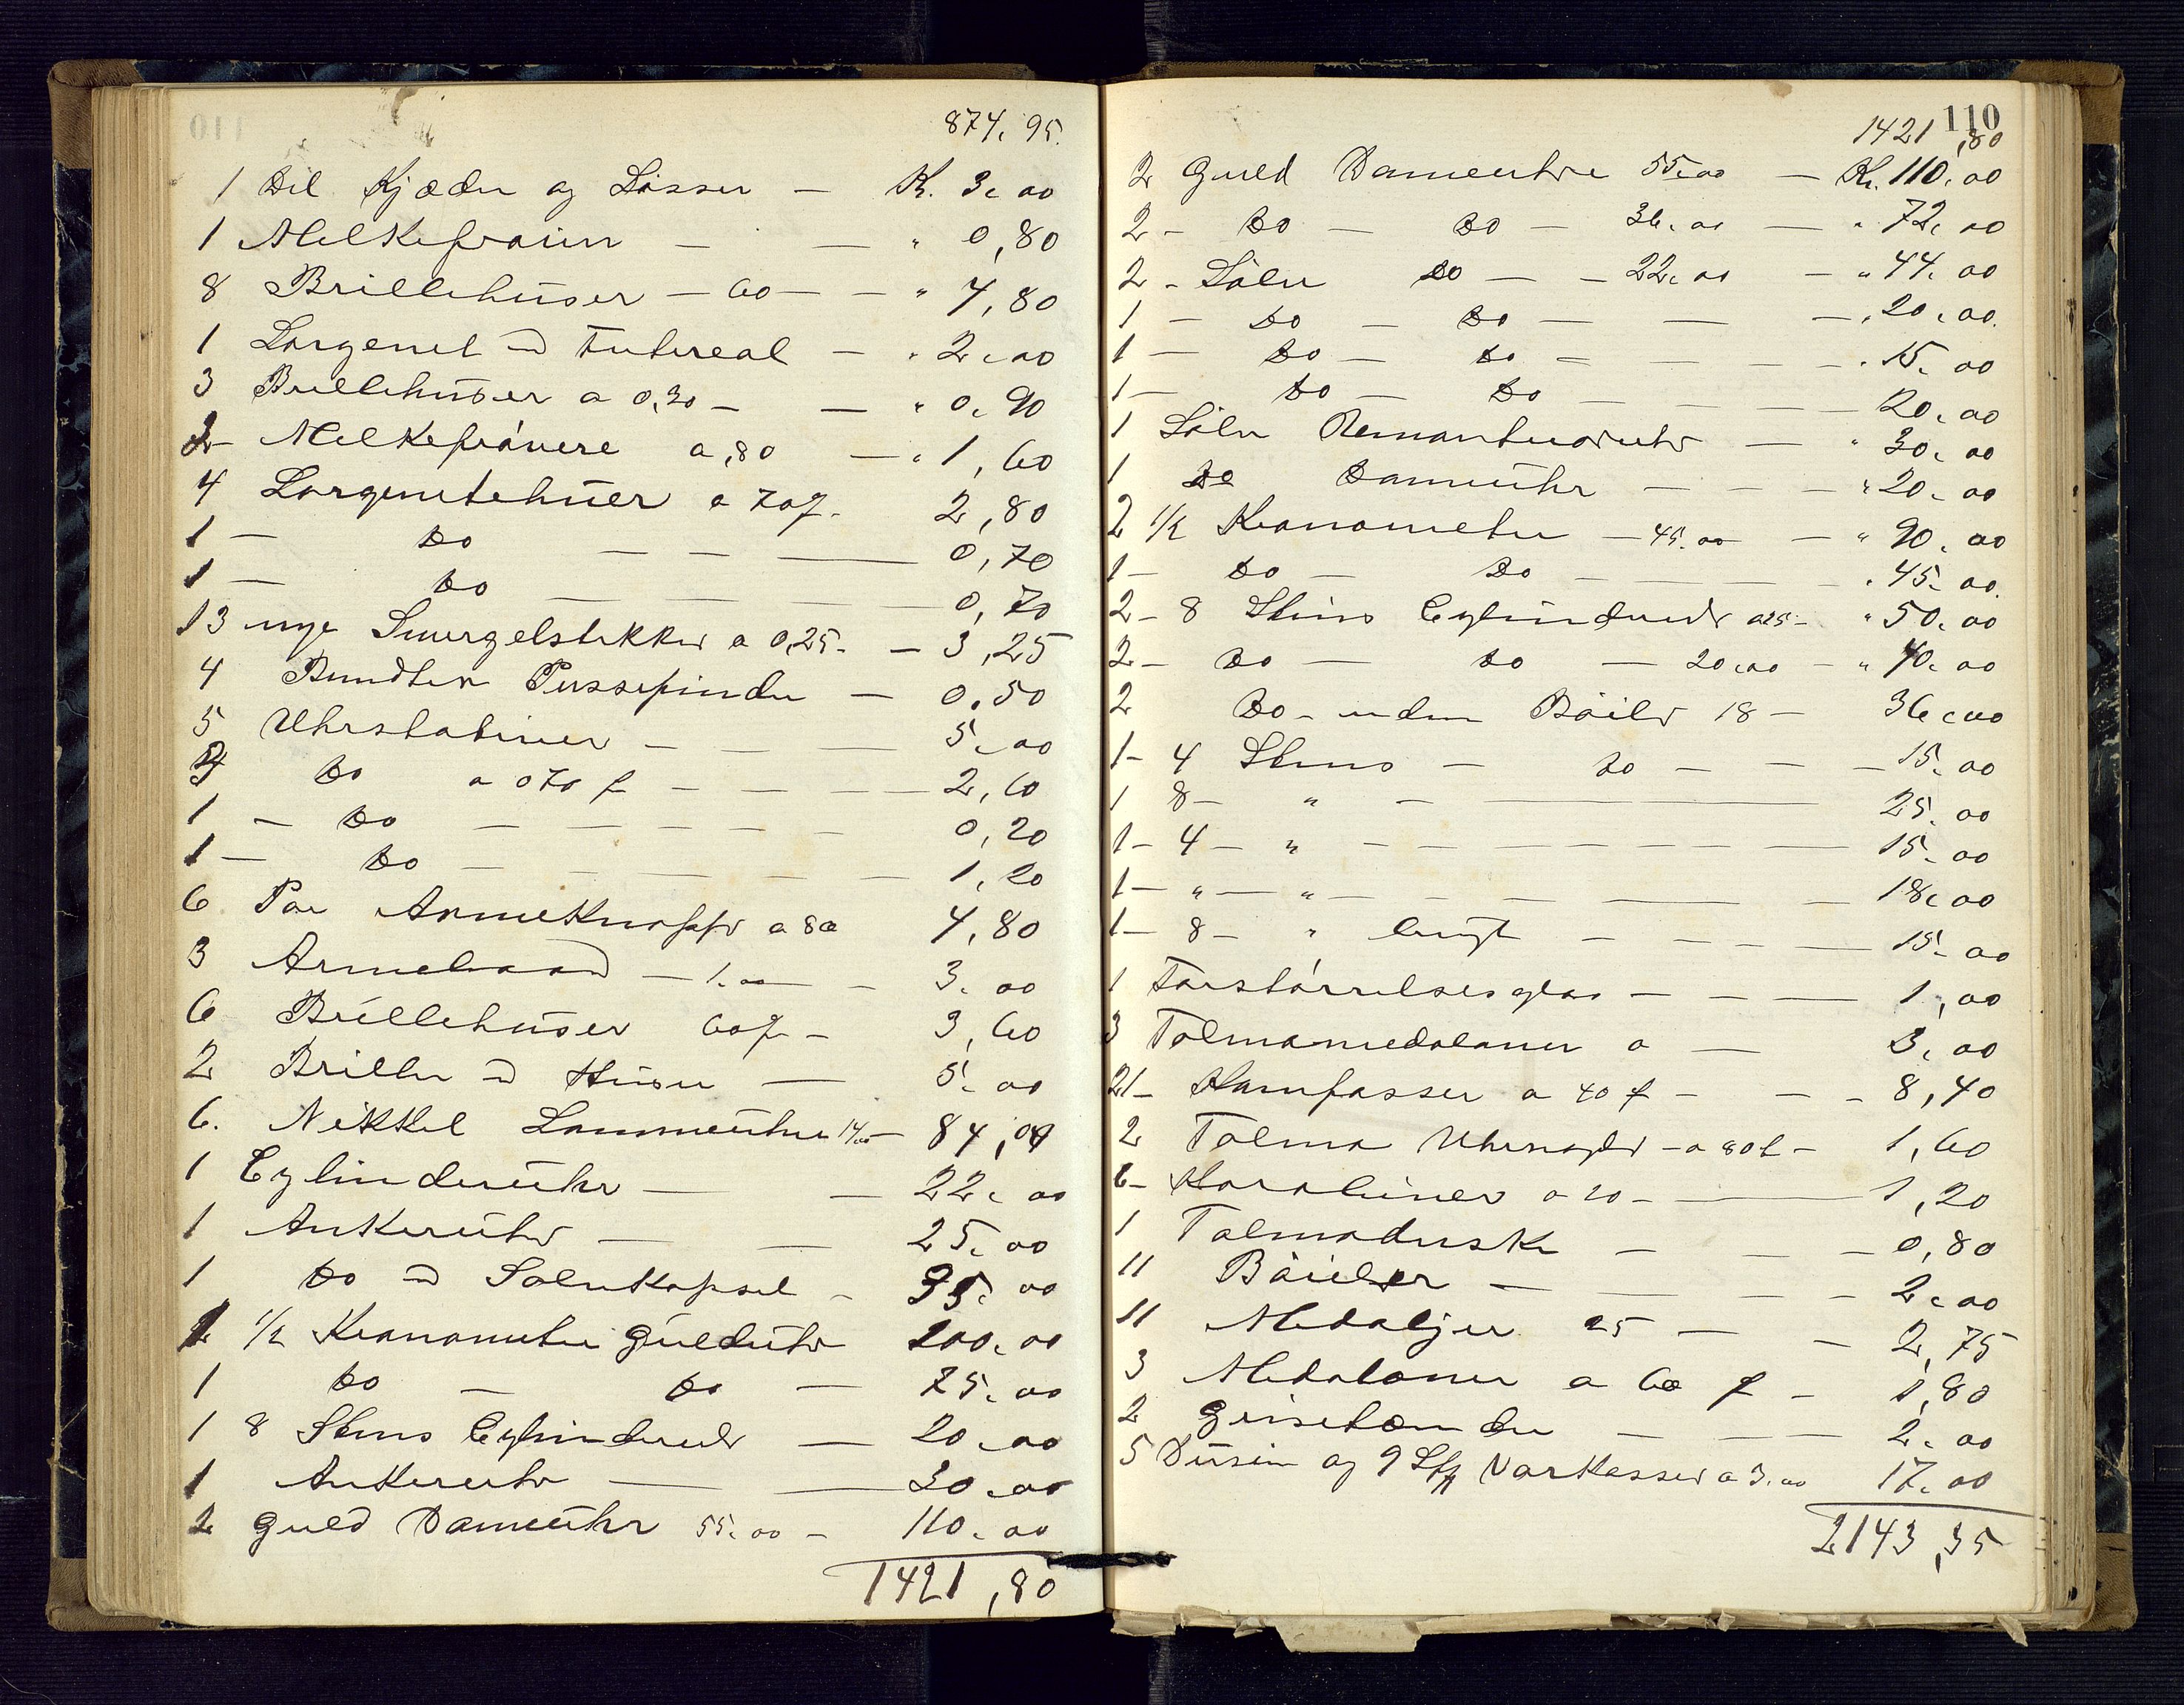 874,95
1 Del Kjæder og Låsser — K. 3,00
1 Melkeprøver — — " 0,80
8 Brillehuser — 60 — — " 4,80
1 Lorgenet m Futereal — " 2,00
3 Brillehuser a 0,30 — — " 0,90
2 — Melkeprøvere a ,80 — " 1,60
4 Lorgnetehuer a 70 ø. 2,80
1 — Do — — — 0,70
1 — Do — — — 0,70
13 nye Smergelstikker a 0,25 — 3,25
4 Bundter Pussepinder — 0,50
5 Uhrstativer — — — 5,00
Do a 0 70 ø — — — 2,60
1 — Do — — — — 0,20
1 — Do — — — — 1,20
6 Par Armeknapper a 80 4,80
3 Armebaand — 1.00 — 3,00
6 Brillehuser 60 ø — 3,60
2 Briller m Huser — 5,00
6. Nikkel Lommeuhre 14.00 — 84,00
1 Cylinderuhr — — 22,00
1 Ankeruhr — — 25,00
1 Do m Sølvkapsel — 35,00
1/2 Kronometer Gulduhr 200,00
1 Do — Do — 75,00
1 8 Stens Cylinderuhr — 20,00
1 Ankeruhr — — 30,00
2 Guld Dameuhr 55,00 — 110,00
1421,80
110
1421,80
2 Guld Dameuhre 55,00 — Kr. 110,00
2 — Do — Do — 36,00 — " 72,00
2 — Sølv Do — — 22,00 — " 44,00
1 — Do — Do — — — " 20,00
1 — Do — Do — — — " 15,00
1 — Do — Do — — — 20,00
1 Sølv Remontueruhr — " 30,00
1 Do Dameuhr — — — " 20,00
2 1/2 Kronometer — 45.00 — " 90,00
1 — Do — Do — — — " 45,00
2 — 8 Stens Cylinderuhr a 25 — " 50,00
2 — Do — Do — 20,00 — " 40,00
2 Do — uden Bøile 18 — 36,00
1 — 4 Stens — Do — — — 15,00
1 8 — " — — 25,00
1 — 4 — " — — — — — 15,00
1 — " — " — — — — — 18,00
1 — 8 — " brugt — — — — 15,00
1 Forstørrelsesglas — — — 1,00
3 Talmamedaloner a — 3,00
21 — Kompasser a 40 ø — — — 8,40
2 Talma Uhrnøgler — a 80 ø — 1,60
6 — Karabiner a 20 — — 1,20
1 Talmaduske — — — 0,80
11 Bøieler — — — — 2,00
11 Medaljer 25 — — 2,75
3 Medaloner a 60 ø — 1,80
2 Grisetænder — — — 2,00
5 Dusin og 9 Stk Vorkasser a 3.00 17,00
2143,35